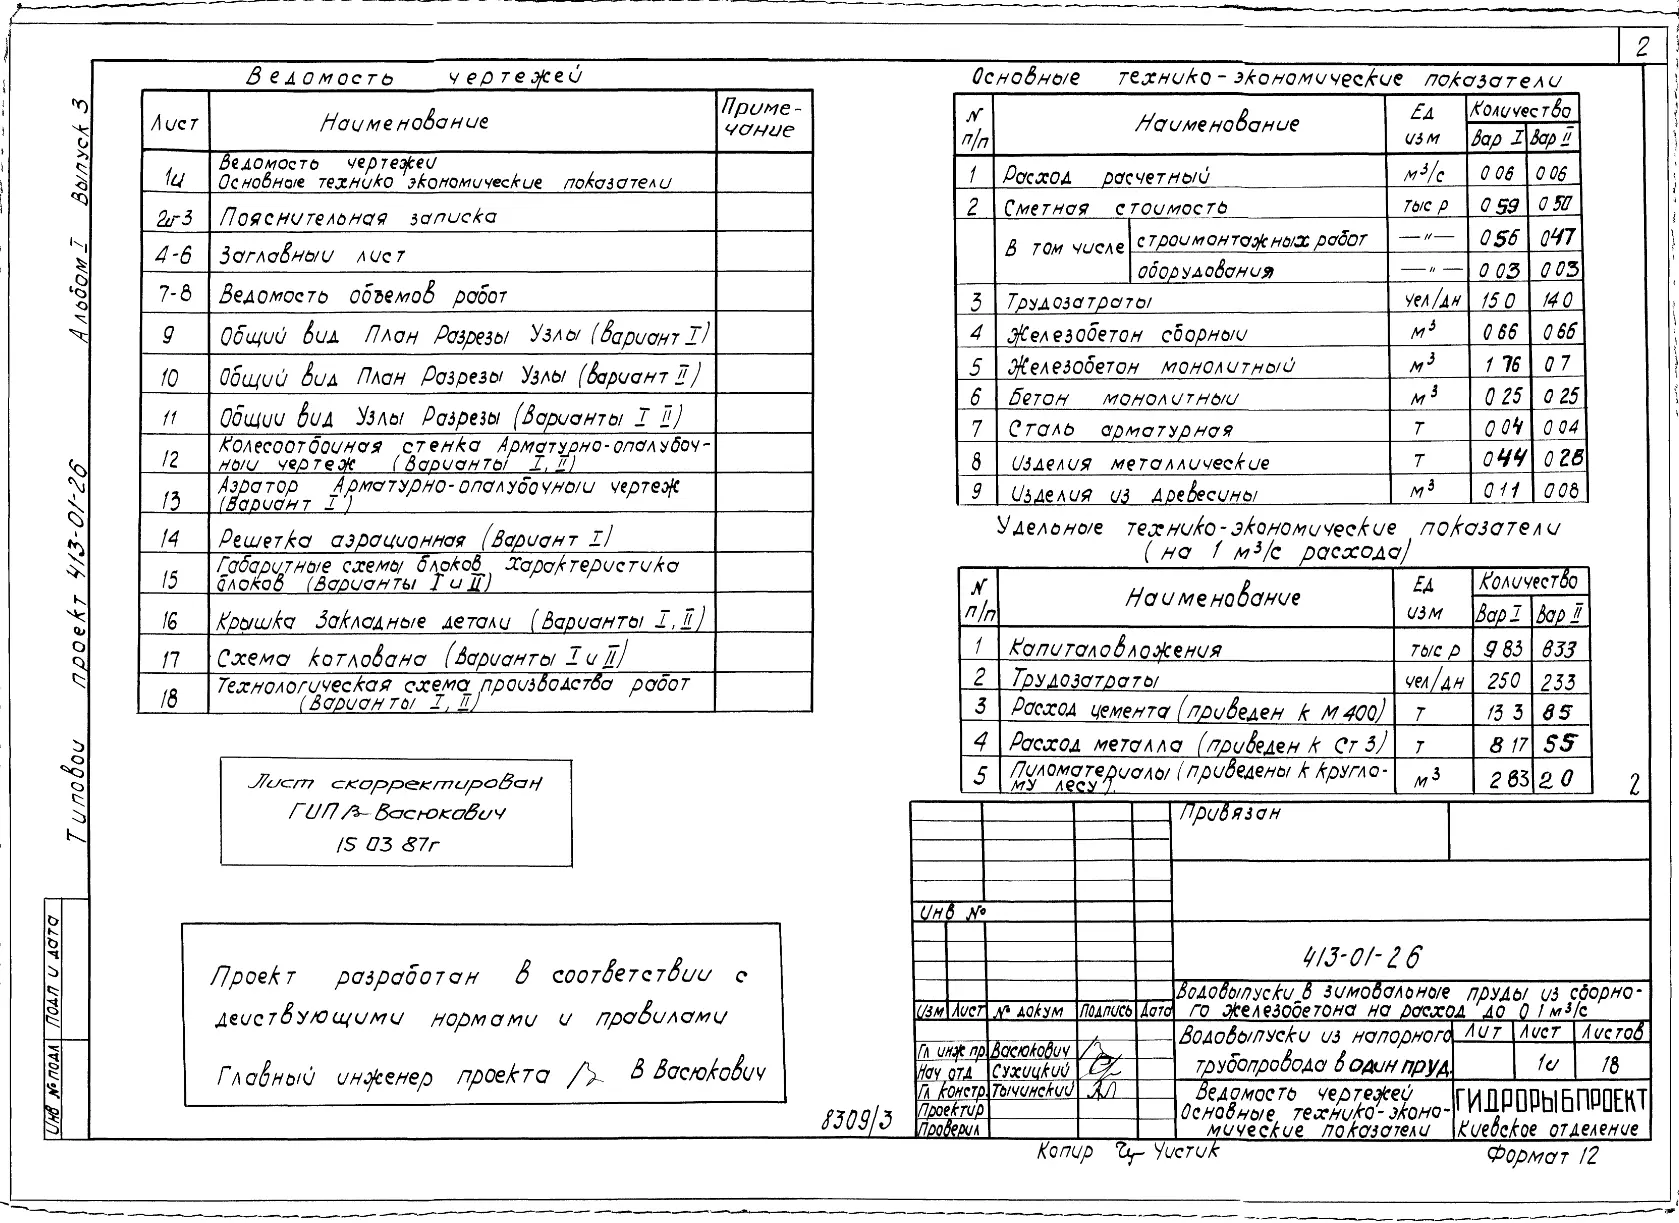 2
Ведомость чертежей
Лист Наименование Приме-
чание
1и Ведомость чертежей
Основные технико экономические показатели
2и-3 Пояснительная записка
4-6 Заглавный лист
7-8 Ведомость объемов работ
9 Общий вид План Разрезы Узлы (вариант I)
10 Общий вид План Разрезы Узлы (вариант II)
11 Общий вид Узлы Разрезы (Варианты I II)
12 Колесоотбойная стенка Арматурно-опалубоч-
ный чертеж (Варианты I, II)
13 Аэратор Арматурно-опалубочный чертеж
(Вариант I)
14 Решетка аэрационная (Вариант I)
15 Габаритные схемы блоков Характеристика
блоков (Варианты I и II)
16 Крышка Закладные детали (Варианты I, II)
17 Схема котлована (Варианты I и II)
18 Технологическая схема производства работ
(Варианты I, II)
Основные технико-экономические показатели
N п/п Наименование Ед изм Количество
Вар I Вар II
1 Расход расчетный м³/с 0 06 0 06
2 Сметная стоимость тыс р 0 59 0 50
В том числе строимонтажных работ —"— 0 56 0 47
оборудования —"— 0 03 0 03
3 Трудозатраты чел/дн 15 0 14 0
4 Железобетон сборный м³ 0 66 0 66
5 Железобетон монолитный м³ 1 76 0 7
6 Бетон монолитный м³ 0 25 0 25
7 Сталь арматурная т 0 04 0 04
8 Изделия металлические т 0 44 0 28
9 Изделия из древесины м³ 0 11 0 08
Удельные технико-экономические показатели
(на 1 м³/с расхода)
N п/п Наименование Ед изм Количество
Вар I Вар II
1 Капиталовложения тыс р 9 83 8 33
2 Трудозатраты чел/дн 250 233
3 Расход цемента (приведен к М 400) т 13 3 8 5
4 Расход металла (приведен к Ст 3) т 8 17 5 5
5 Пиломатериалы (приведены к кругло-
му лесу). м³ 2 83 2 0
2
Типовой проект 413-01-26 Альбом I Выпуск 3
Лист скорректирован
ГИП Васюкович
15 03 87г
Проект разработан в соответствии с
действующими нормами и правилами
Главный инженер проекта В Васюкович
8309/3
Инв № подл Подп и дата
Привязан
Инв №
413-01-26
Водовыпуски в зимовальные пруды из сборно-
го железобетона на расход до 0 1 м³/с
Изм Лист № докум Подпись Дата
Гл инж пр Васюкович
Нач отд Сухицкий
Гл констр. Тычинский
Проектир
Проверил
Водовыпуски из напорного
трубопровода в один пруд.
Лит Лист Листов
1и 18
Ведомость чертежей
Основные технико-эконо-
мические показатели
ГИДРОРЫБПРОЕКТ
Киевское отделение
Копир Чистик
Формат 12